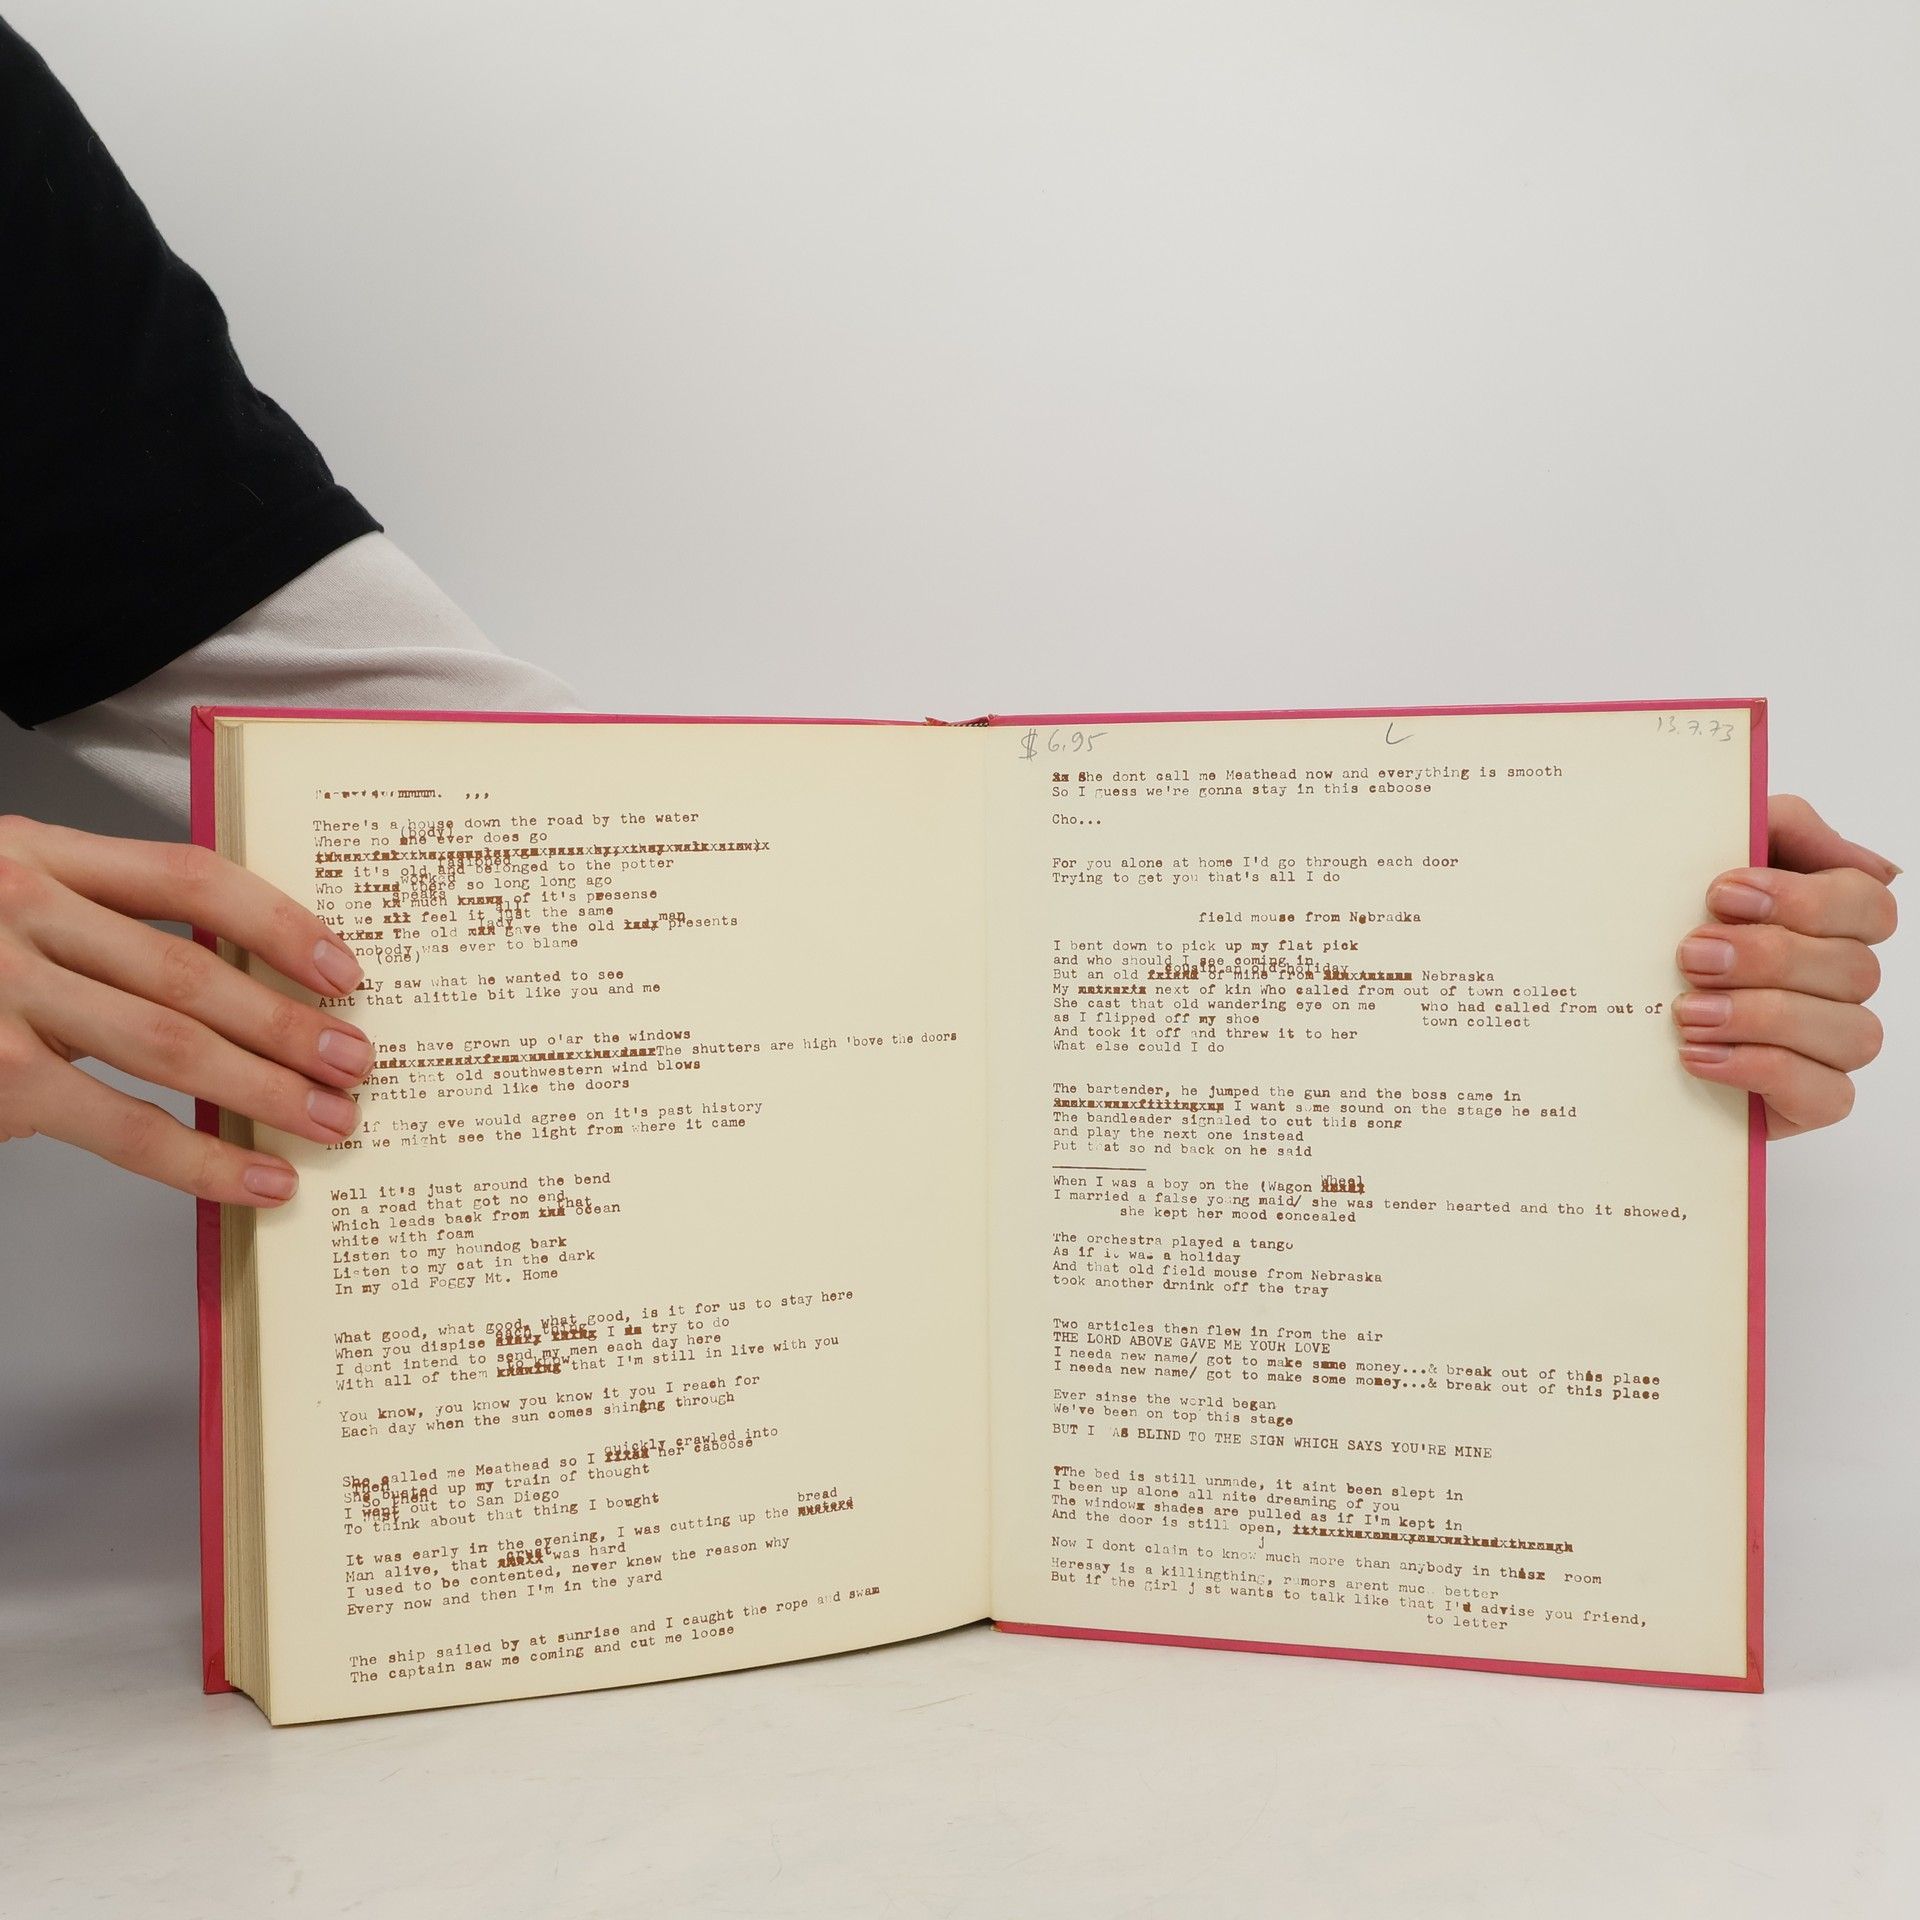 There's a house down the road by the water
(body)
Where no one ever does go
it's old and belonged to the potter
worked
Who there so long long ago
speaks
No one much of it's presense
all
But we feel it just the same
lady man
The old gave the old presents
nobody was ever to blame
(one)
saw what he wanted to see
Aint that alittle bit like you and me
have grown up o'ar the windows
The shutters are high 'bove the doors
when that old southwestern wind blows
rattle around like the doors
if they eve would agree on it's past history
Then we might see the light from where it came
Well it's just around the bend
on a road that got no end
that
Which leads back from ocean
white with foam
Listen to my houndog bark
Listen to my cat in the dark
In my old Foggy Mt. Home
What good, what good, what good, is it for us to stay here
each thing
When you dispise I try to do
I dont intend to send my men each day here
to know
With all of them that I'm still in live with you
You know, you know it you I reach for
Each day when the sun comes shinging through
quickly crawled into
She called me Meathead so I her caboose
Then
She busted up my train of thought
So then
I went out to San Diego
just
To think about that thing I bought
bread
It was early in the evening, I was cutting up the
crust
Man alive, that was hard
I used to be contented, never knew the reason why
Every now and then I'm in the yard
The ship sailed by at sunrise and I caught the rope and swam
The captain saw me coming and cut me loose
$ 6.95
13.7.73
She dont call me Meathead now and everything is smooth
So I guess we're gonna stay in this caboose
Cho...
For you alone at home I'd go through each door
Trying to get you that's all I do
field mouse from Nebradka
I bent down to pick up my flat pick
and who should I see coming in
cousin an old holiday
But an old of mine from Nebraska
My next of kin Who called from out of town collect
She cast that old wandering eye on me who had called from out of
as I flipped off my shoe town collect
And took it off and threw it to her
What else could I do
The bartender, he jumped the gun and the boss came in
I want some sound on the stage he said
The bandleader signaled to cut this song
and play the next one instead
Put that so nd back on he said
Wheel
When I was a boy on the (Wagon
I married a false young maid/ she was tender hearted and tho it showed,
she kept her mood concealed
The orchestra played a tango
As if it was a holiday
And that old field mouse from Nebraska
took another drnink off the tray
Two articles then flew in from the air
THE LORD ABOVE GAVE ME YOUR LOVE
I needa new name/ got to make some money...& break out of this place
I needa new name/ got to make some money...& break out of this place
Ever sinse the world began
We've been on top this stage
BUT I AS BLIND TO THE SIGN WHICH SAYS YOU'RE MINE
The bed is still unmade, it aint been slept in
I been up alone all nite dreaming of you
The window shades are pulled as if I'm kept in
And the door is still open,
j
Now I dont claim to know much more than anybody in this room
Heresay is a killingthing, rumors arent much better
But if the girl j st wants to talk like that I'd advise you friend,
to letter